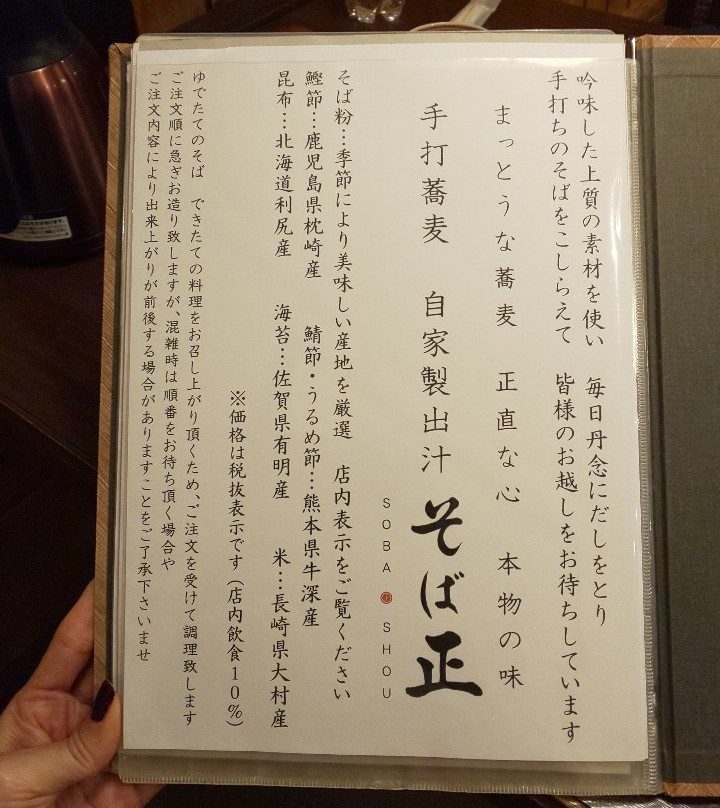 吟味した上質の素材を使い　毎日丹念にだしをとり
手打ちのそばをこしらえて　皆様のお越しをお待ちしています
まっとうな蕎麦　正直な心　本物の味
手打蕎麦　自家製出汁　そば正
SOBA SHOU
そば粉…季節により美味しい産地を厳選　店内表示をご覧ください
鰹節…鹿児島県枕崎産　鯖節・うるめ節…熊本県牛深産
昆布…北海道利尻産　海苔…佐賀県有明産　米…長崎県大村産
※価格は税抜表示です（店内飲食10％）
ゆでたてのそば　できたての料理をお召し上がり頂くため、ご注文を受けて調理致します
ご注文順に急ぎお造り致しますが、混雑時は順番をお待ち頂く場合や
ご注文内容により出来上がりが前後する場合がありますことをご了承下さいませ